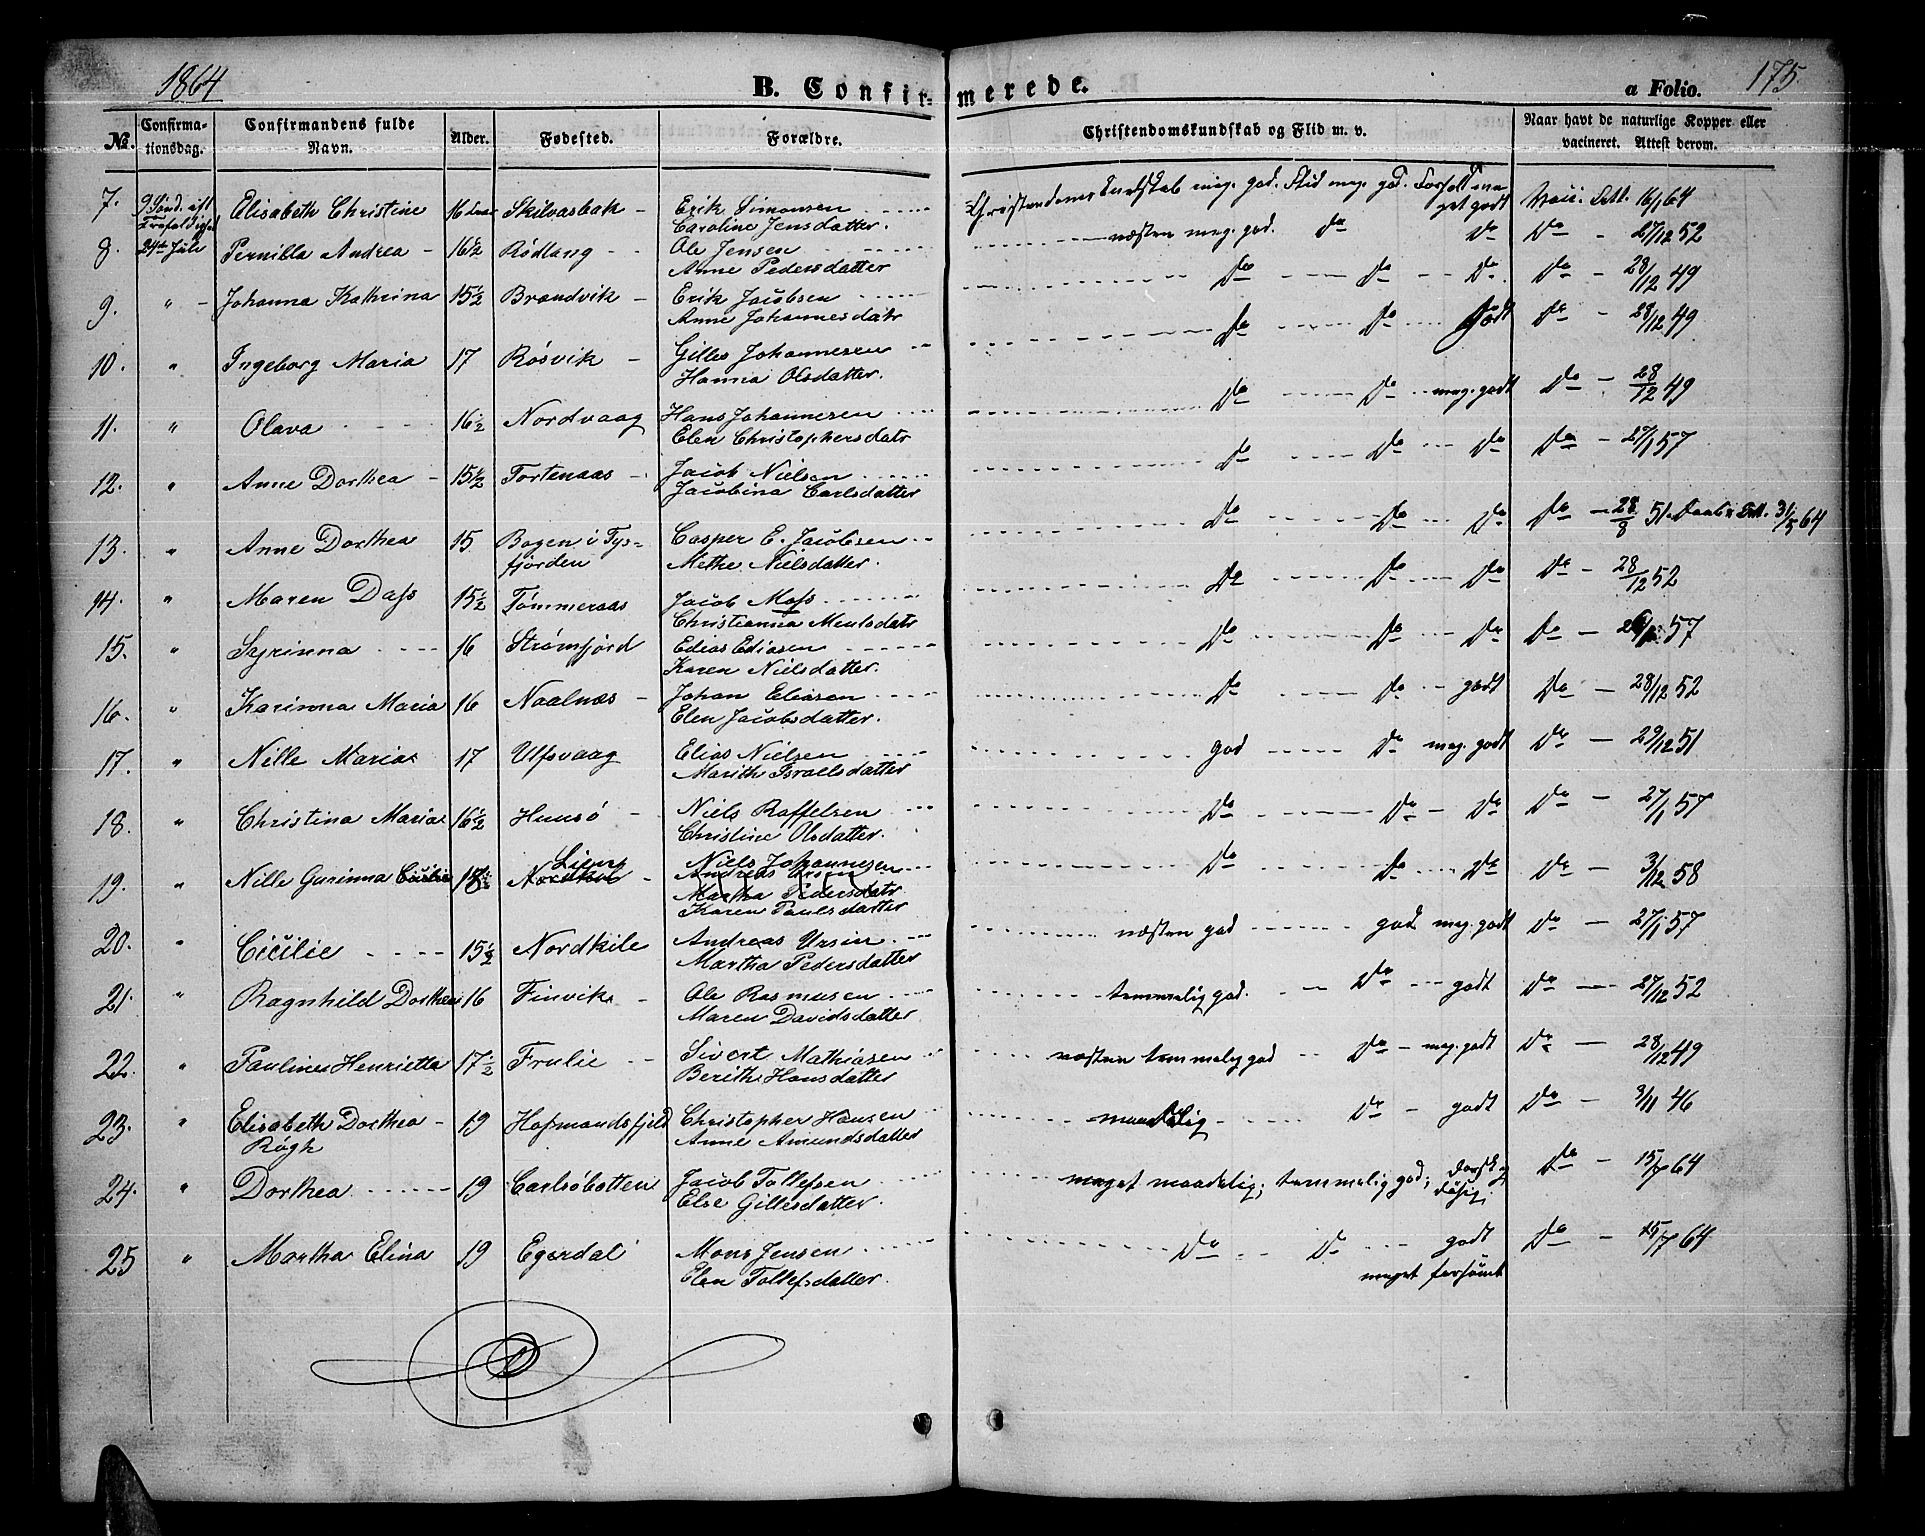 1864
B. Confir-merede.
a Folio. 175.
No. Confirma-tionsdag. Confirmandens fulde Navn. Alder. Fødested. Forældre. Christendomskundskab og Flid m. v. Naar havt de naturlige Kopper eller vacineret. Attest derom.
7. 9 Sønd. eft Elisabeth Christine 16 Skilvasbak - Erik Simonsen Christendomskundskab meg. god. Flid meg. god. Forhold meget godt 16/1 64
Caroline Jensdatter.
8. 24de Juli Pernilla Andrea - 16½ Rødtang - Ole Jensen næsten meg. god. Do Do Do - 27/12 52
Anne Pedersdatter
9. " - Johanna Kathrina 15½ Brandvik - Erik Jacobsen Do Do Do. Do - 28/12 49
Anne Johannesdatr
10. " Ingeborg Maria 17 Røsvik - Gilles Johannesen Do Do godt Do - 28/12 49
Hanna Olsdatter.
11. " Olava 16½ Nordvaag Hans Johannesen Do Do meg. godt Do - 28/12 49
Elen Christophersdatr
12. " Anne Dorthea - 15½ Tortenaas - Jacob Nielsen Do Do Do Do - 27/1 57
Jacobina Carlsdatter
13. " Anne Dorthea 15 Bogen i Tys- Casper E. Jacobsen Do Do Do Do - 28/8 51. 31/5 64
fjorden Methe Nielsdatter.
14. " Maren Dass 15½ Tømmeraas Jacob Moss Do Do Do Do - 28/12 52
Christianna Mentsdatr
15. " Syrinna 16 Strømfjord Edias Ediasen Do Do Do Do - 57
Karen Nielsdatter.
16. " Karinna Maria 16 Naalnæs - Johan Eliasen Do Do godt Do - 28/12 52
Elen Jacobsdatter.
17. " Nille Maria 17 Ulfsvaag Elias Nielsen god Do meg. godt Do - 29/12 51
Marith Israelsdatter
18. " Christina Maria 16½ Hunsø - Niels Raffelsen Do Do Do Do - 27/1 57
Christine Olsdatter.
Niels Johannesen
19. " Nille Gurinna Cicilie Nordkil - Andreas Ursin Do Do Do Do - 3/12 58
Martha Pedersdatr
Karen Paulsdatter
20. " Cicilie 15½ Nordkile Andreas Ursin. næsten god god meg. godt Do - 27/1 57
Martha Pedersdatter
21. " Ragnhild Dorthea 16 Finvik - Ole Rasmusen temmelig god. Do godt Do - 27/12 52
Maren Davidsdatter
22. " Pauline Henrietta 17½ Frulie - Sivert Mathiasen næsten temmelig god Do - meg. godt Do - 28/12 49
Berith Hansdatter
23. " Elisabeth Dorthea - 19 Hofmandsfjeld Christopher Hansen maadelig Do - godt Do - 3/11 46
Røgh Anne Amundsdatter
24. " Dorthea 19 Carlsøbotten Jacob Tollefsen meget maadelig; temmelig god; dorsk og Do - 15/7 64
Else Gillesdatter døsig.
25 " Martha Elina 19 Egerdal Mons Jensen Do Do godt Do - 15/7 64
Elen Tollefsdatter. meget forsømt